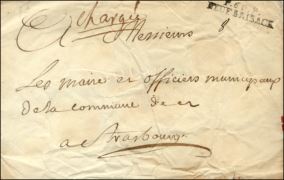 chargé
P.67.P.
NEUF-BRISACK
A Messieurs
Les maire et officiers municipaux
de la commune de et
a Strasbourg